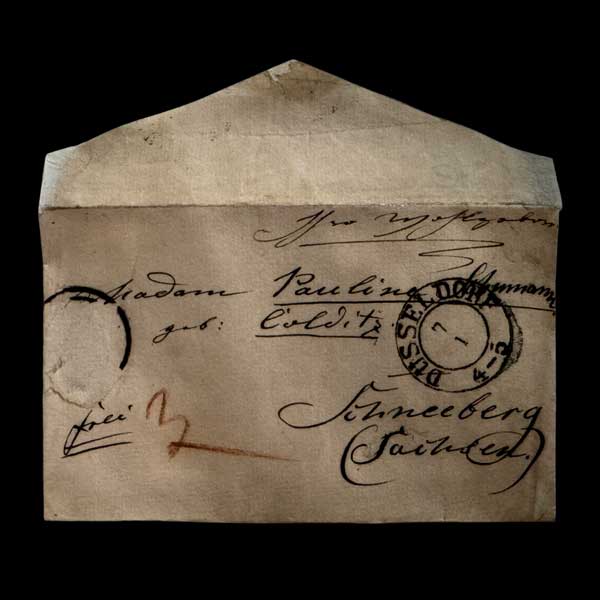 Ihro Wohlgeboren
Madam Pauline Schumann
geb: Colditz.
DÜSSELDORF
7
1
4-5
frei
Schneeberg
(Sachsen.)